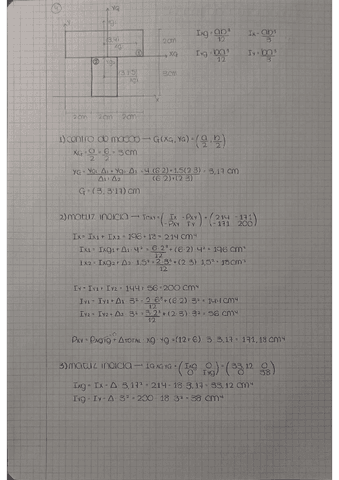 YG
Ixg = bh³/12 Ix = bh³/3
XG
Iyg = hb³/12 Iy = hb³/3
x
2cm 2cm 2cm
1) centro de massa → G(XG, YG) = (
XG = 6/2 = 3cm
YG = YG1·A1 + YG2·A2 = 4(6·2) + 1,5(2·3) = 3,17 cm
A1 + A2 (6·2) + (2·3)
G = (3, 3,17) cm
2) matriz inércia → Ixy = (Ix -Pxy / -Pxy Iy) = (214 -171 / -171 200)
Ix = Ix1 + Ix2 = 196 + 18 = 214 cm⁴
Ix1 = Ixg1 + A1·4² = 6·2³/12 + (6·2)·4² = 196 cm⁴
Ix2 = Ixg2 + A2·1,5² = 2·3³/12 + (2·3)·1,5² = 18 cm⁴
Iy = Iy1 + Iy2 = 144 + 56 = 200 cm⁴
Iy1 = Iyg1 + A1·3² = 2·6³/12 + (6·2)·3² = 144 cm⁴
Iy2 = Iyg2 + A2·3² = 3·2³/12 + (2·3)·3² = 56 cm⁴
Pxy = Pxgyg + Atotal·xg·yg = (12+6)·3·3,17 = 171,18 cm⁴
3) matriz inércia → IGxgyg = (Ixg 0 / 0 Iyg) = (33,12 0 / 0 38)
Ixg = Ix - A·3,17² = 214 - 18·3,17 = 33,12 cm⁴
Iyg = Iy - A·3² = 200 - 18·3² = 38 cm⁴